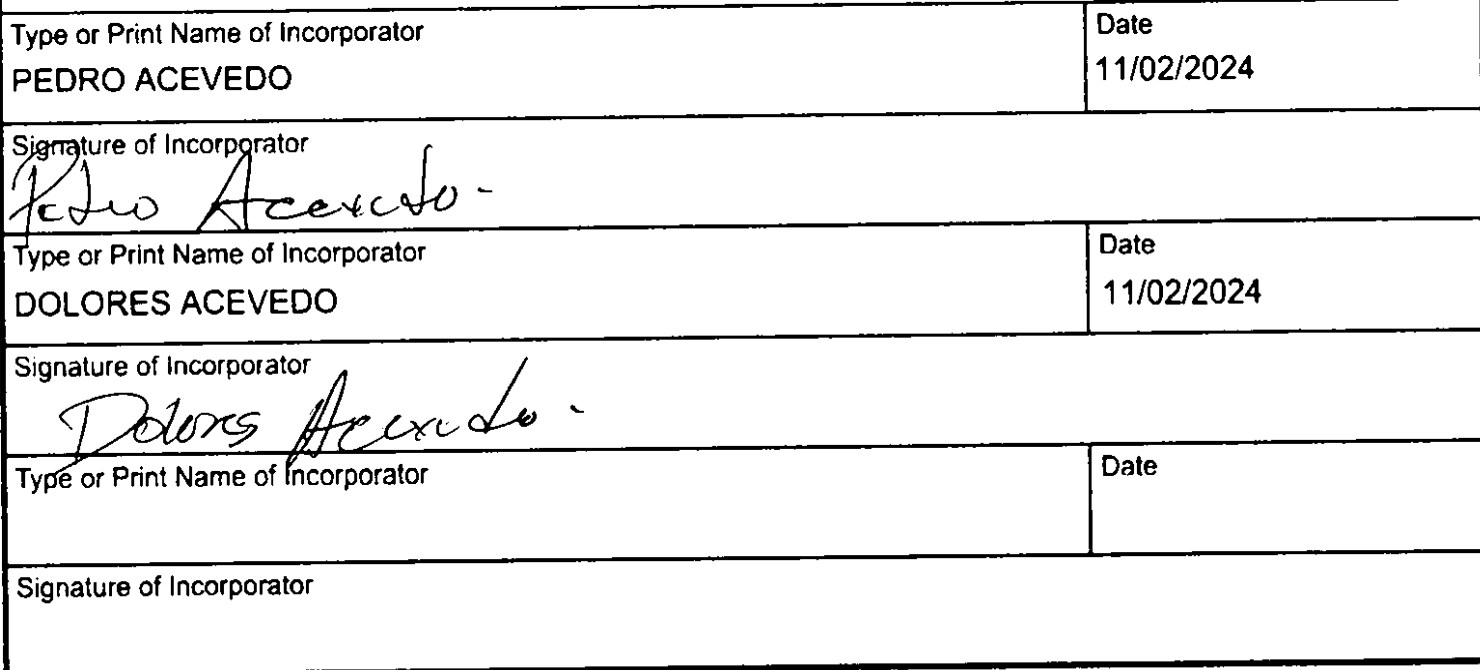 Type or Print Name of Incorporator
Date
PEDRO ACEVEDO
11/02/2024
Signature of Incorporator
Pedro Acevedo
Type or Print Name of Incorporator
Date
DOLORES ACEVEDO
11/02/2024
Signature of Incorporator
Dolores Acevedo
Type or Print Name of Incorporator
Date
Signature of Incorporator